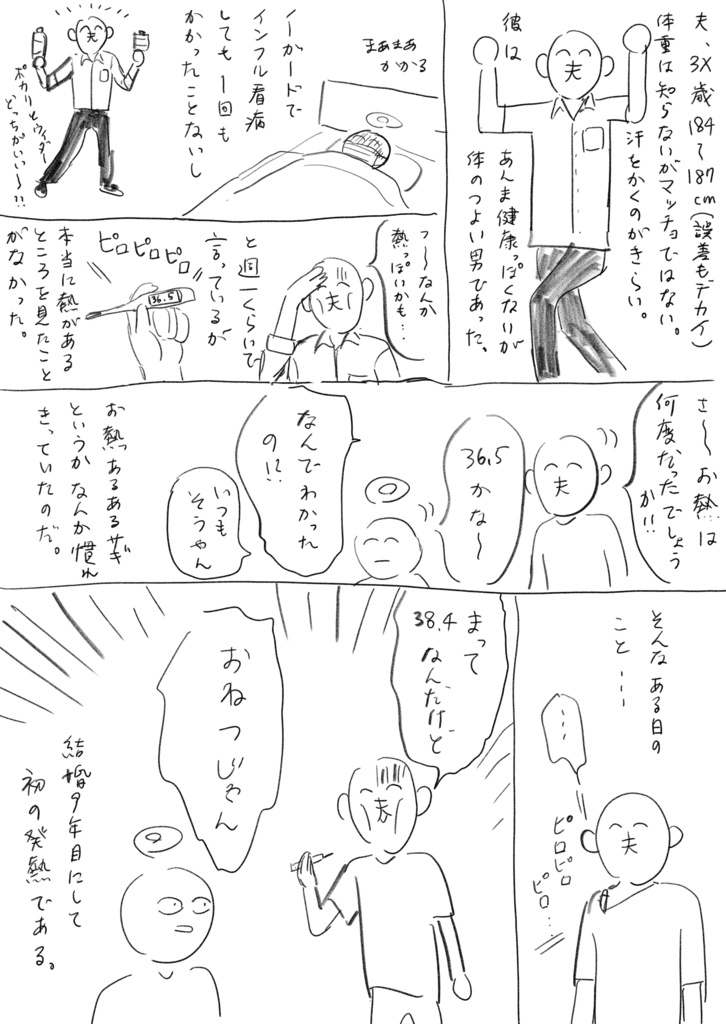 夫、3X歳184〜187cm(誤差もデカイ)
体重は知らないがマッチョではない。
汗をかくのがきらい。
彼は
あんま健康っぽくないが
体のつよい男であった、
夫
まぁまぁ
かかる
ノーガードで
インフル看病
しても1回も
かかったことないし
夫
ポカリとウィダー
どっちがいい〜!!
う〜なんか
熱っぽいかも…
夫
と週一くらいで
言っているが
ピロピロピロ
36.5
本当に熱がある
ところを見たこと
がなかった。
さ〜〜お熱は
何度だったでしょう
か!!
夫
36.5
かな〜
なんでわかった
の!!
いつも
そうやん
お熱あるあるサギ
というかなんか慣れ
きっていたのだ。
そんなある日の
こと…
…
ピロピロ
ピロ…
夫
まって
38.4
なんだけど
夫
おねつじゃん
結婚9年目にして
初の発熱である。